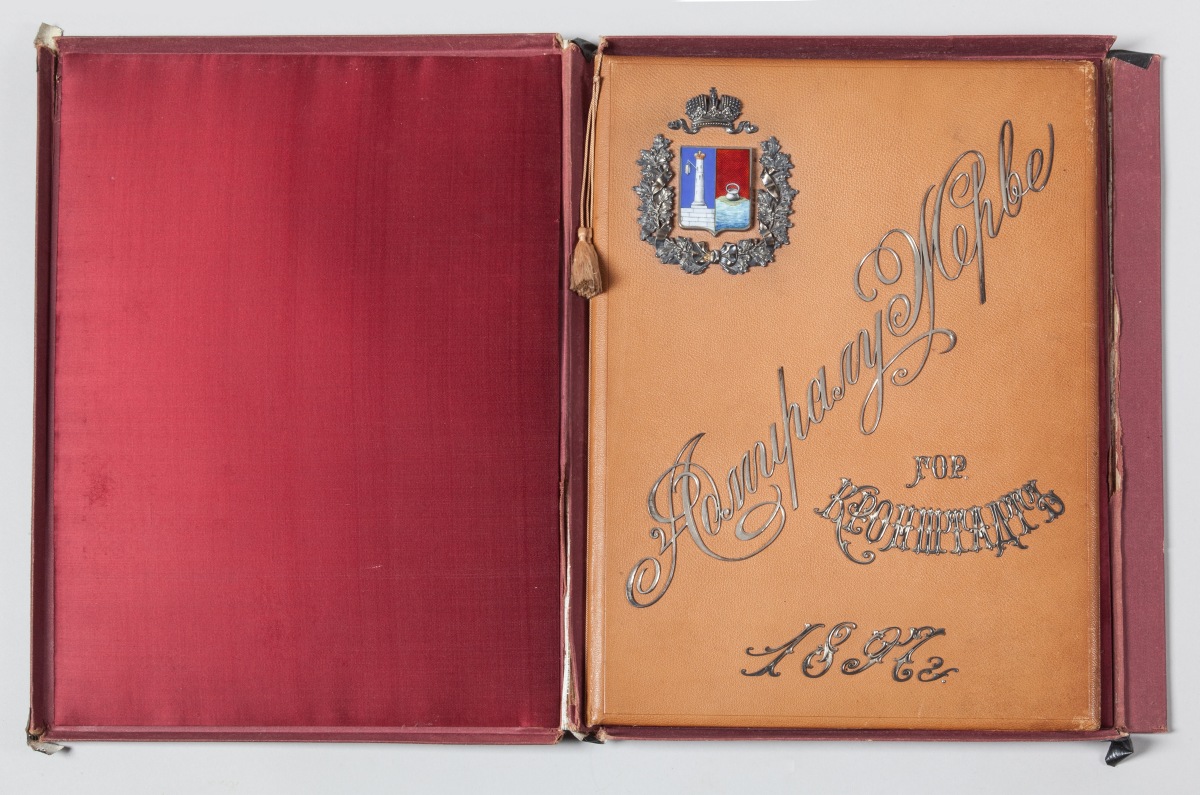 Адмиралу Жерве
ГОР.
КРОНШТАДТЪ
1897 г.